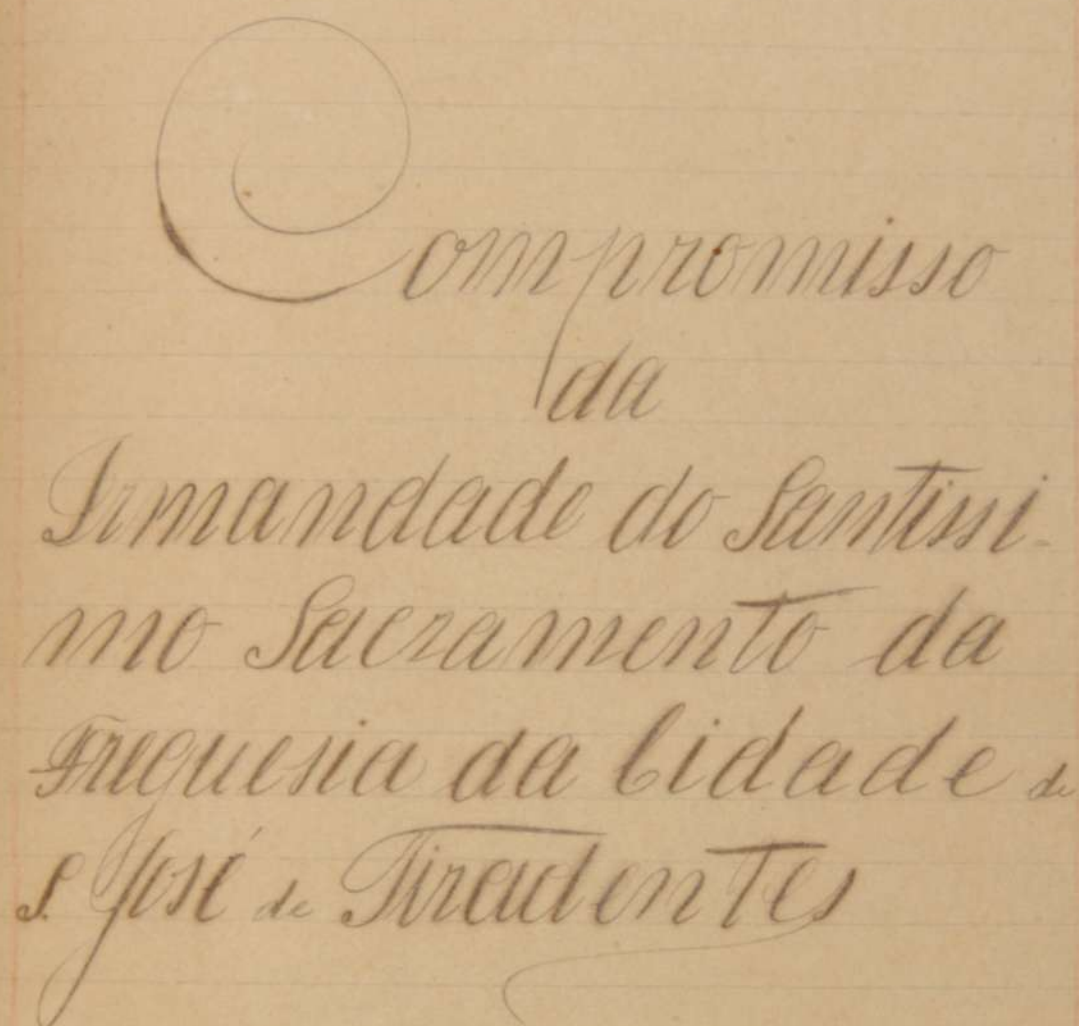 Compromisso
da
Irmandade do Santissi-
mo Sacramento da
Freguesia da Cidade de
S. José de Tiradentes